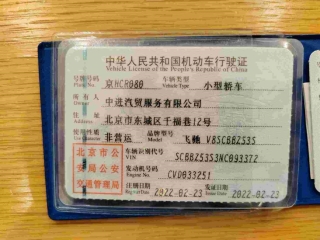 中华人民共和国机动车行驶证
Vehicle License of the People's Republic of China
号牌号码 京HCR080 车辆类型 小型轿车
Plate No. Vehicle Type
所有人 中进汽贸服务有限公司
住址 北京市东城区千福巷12号
使用性质 非营运 品牌型号 飞驰 V8SCBBZ535
北京市公 车辆识别代号 SCBBZ5353NC093372
VIN
安局公安 发动机号码 CVD033251
Engine No.
交通管理局 注册日期 2022-02-23 发证日期 2022-02-23